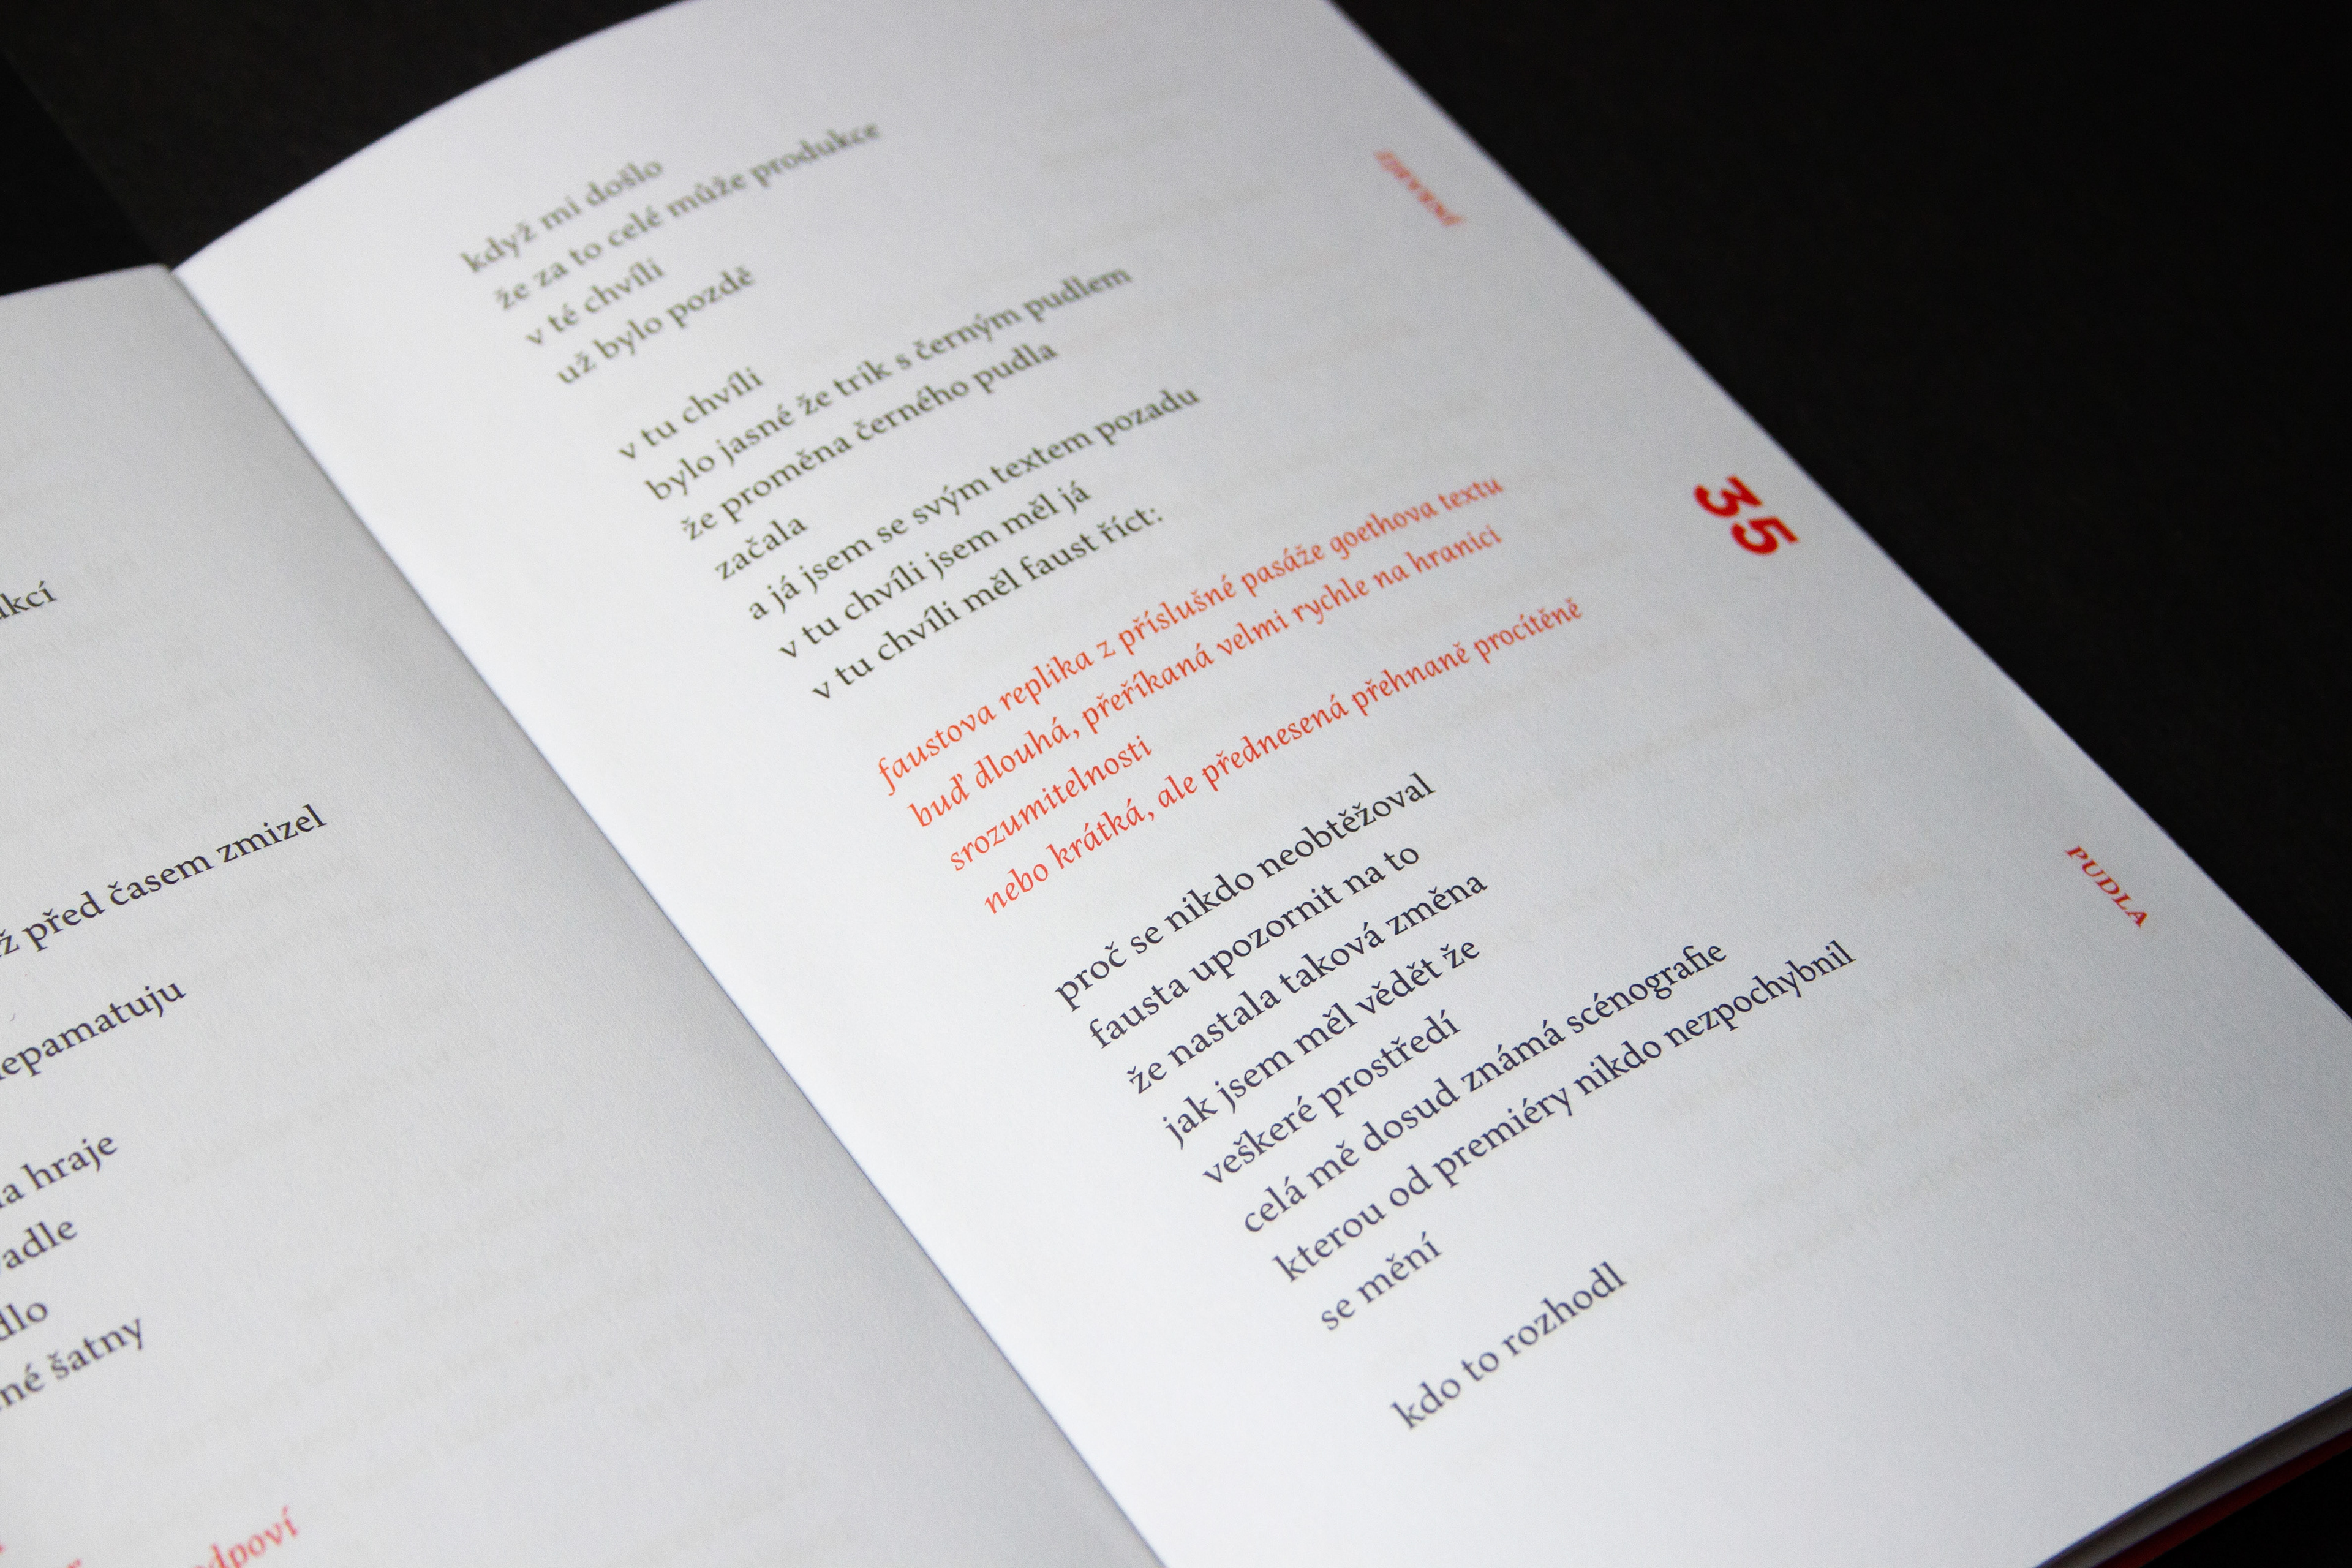 akcí
ž před časem zmizel
nepamatuju
na hraje
adle
dlo
né šatny
odpoví
když mi došlo
že za to celé může produkce
v té chvíli
už bylo pozdě
v tu chvíli
bylo jasné že trik s černým pudlem
že proměna černého pudla
začala
a já jsem se svým textem pozadu
v tu chvíli jsem měl já
v tu chvíli měl faust říct:
faustova replika z příslušné pasáže goethova textu
buď dlouhá, přeříkaná velmi rychle na hranici
srozumitelnosti
nebo krátká, ale přednesená přehnaně procítěně
proč se nikdo neobtěžoval
fausta upozornit na to
že nastala taková změna
jak jsem měl vědět že
veškeré prostředí
celá mě dosud známá scénografie
kterou od premiéry nikdo nezpochybnil
se mění
kdo to rozhodl
35
PUDLA